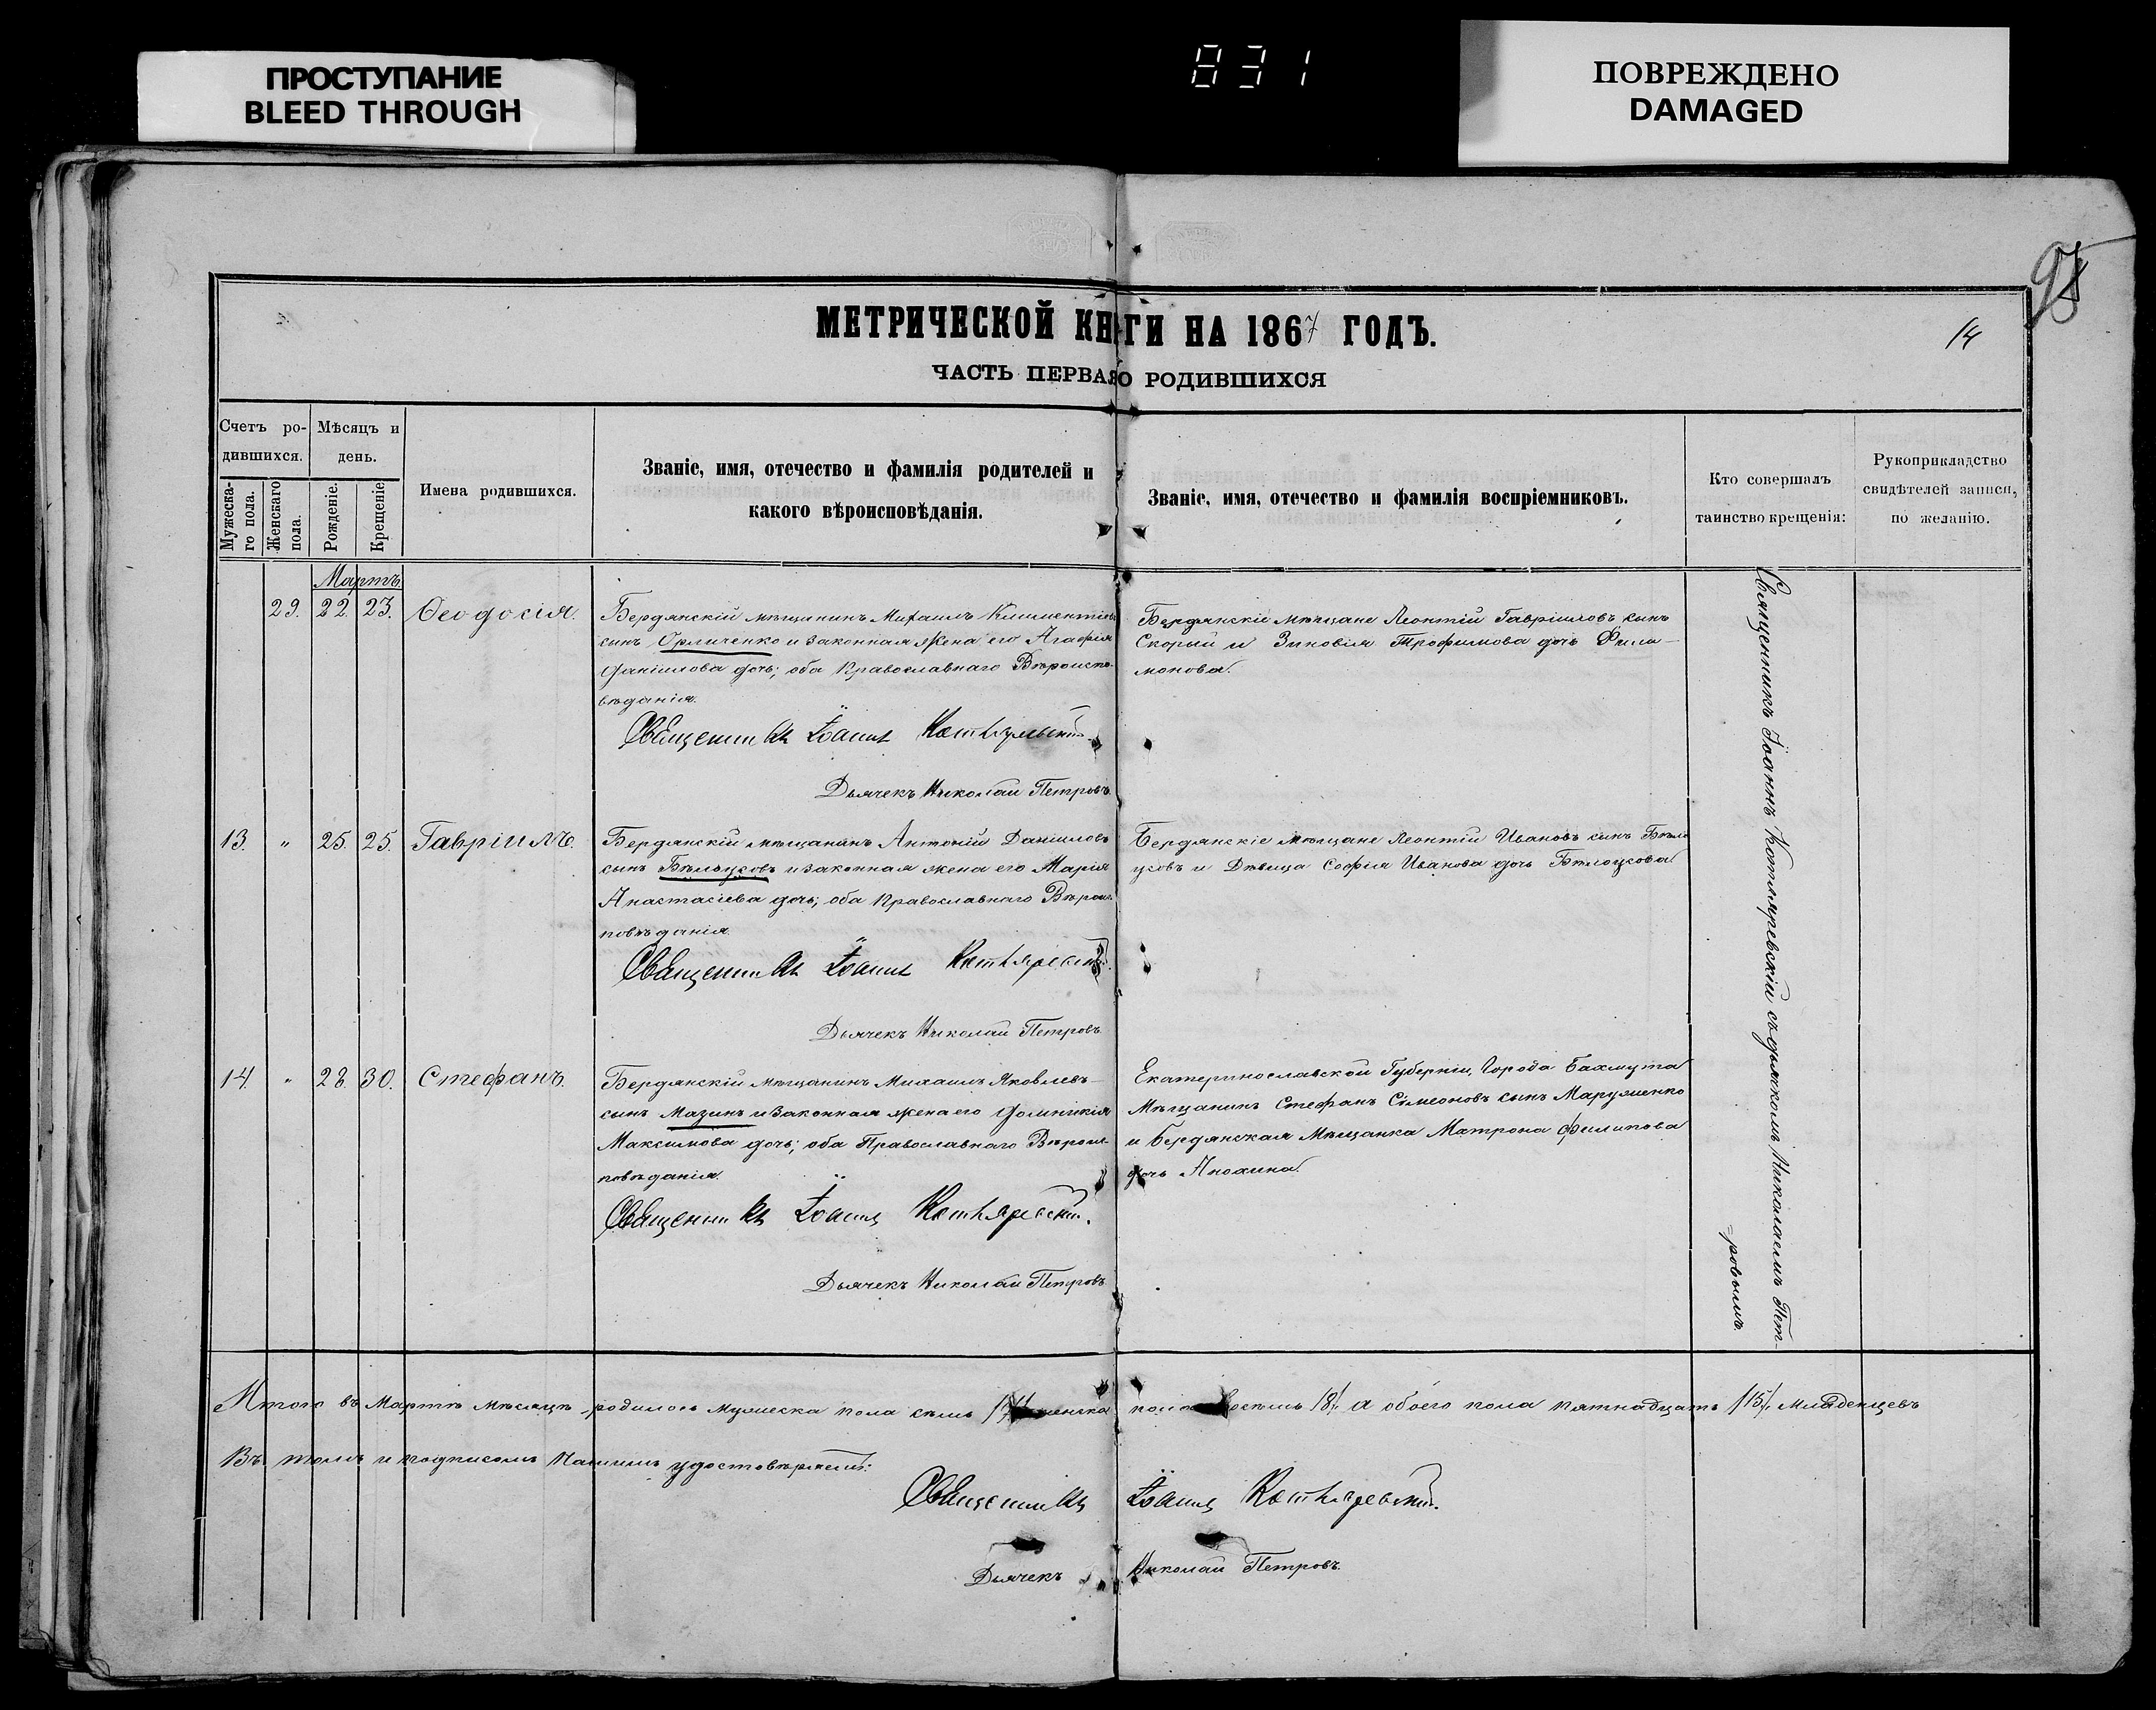 ПРОСТУПАНИЕ
BLEED THROUGH
831
ПОВРЕЖДЕНО
DAMAGED
МЕТРИЧЕСКОЙ КНИГИ НА 1867 ГОДЪ.
14
ЧАСТЬ ПЕРВАЯ О РОДИВШИХСЯ
Счетъ ро-
дившихся.
Мужеска-
го пола.
Женскаго
пола.
Мѣсяцъ и
день.
Рожденіе.
Крещеніе
Имена родившихся.
Званіе, имя, отечество и фамилія родителей и
какого вѣроисповѣданія.
Званіе, имя, отечество и фамилія воспріемниковъ.
Кто совершалъ
таинство крещенія:
Рукоприкладство
свидѣтелей записи,
по желанію.
Мартъ
29. 22. 23. Ѳеодосія.
Бердянскій мѣщанинъ Михаилъ Климентіевъ
сынъ Орличенко и законная жена его Агафія
Даніилова дочь; оба Православнаго Вѣроиспо-
вѣданія.
Священникъ Іоаннъ Котляревскій.
Дьячекъ Николай Петровъ.
Бердянскіе мѣщане Леонтій Гавріиловъ сынъ
Скорый и Зиновія Трофимова дочь Фили-
монова.
13. " 25. 25. Гавріилъ.
Бердянскій мѣщанинъ Антоній Даниловъ
сынъ Бѣлоусовъ и законная жена его Марія
Анастасіева дочь; оба Православнаго Вѣроис-
повѣданія.
Священникъ Іоаннъ Котляревскій.
Дьячекъ Николай Петровъ.
Бердянскіе мѣщане Леонтій Ивановъ сынъ Бѣло
усовъ и Дѣвица Софія Иванова дочь Бѣлоусова
14. " 28. 30. Стефанъ.
Бердянскій мѣщанинъ Михаилъ Яковлевъ
сынъ Мазинъ и законная жена его Домникія
Максимова дочь; оба Православнаго Вѣроис-
повѣданія.
Священникъ Іоаннъ Котляревскій.
Дьячекъ Николай Петровъ
Екатеринославской Губерніи, Города Бахмута
Мѣщанинъ Стефанъ Сѵмеоновъ сынъ Марушенко
и Бердянская Мѣщанка Матрона Филипова
дочь Анохина.
Священникъ Іоаннъ Котляревскій съ дьячкомъ Николаемъ Пет-
=ровымъ.
Итого въ Мартѣ мѣсяцѣ родилось мужеска пола семь /7/ женска пола восемь /8/. а обоего пола пятнадцать /15/. младенцевъ
Въ томъ и подписомъ Нашимъ удостовѣряемъ:
Священникъ Іоаннъ Котляревскій.
Дьячекъ Николай Петровъ.